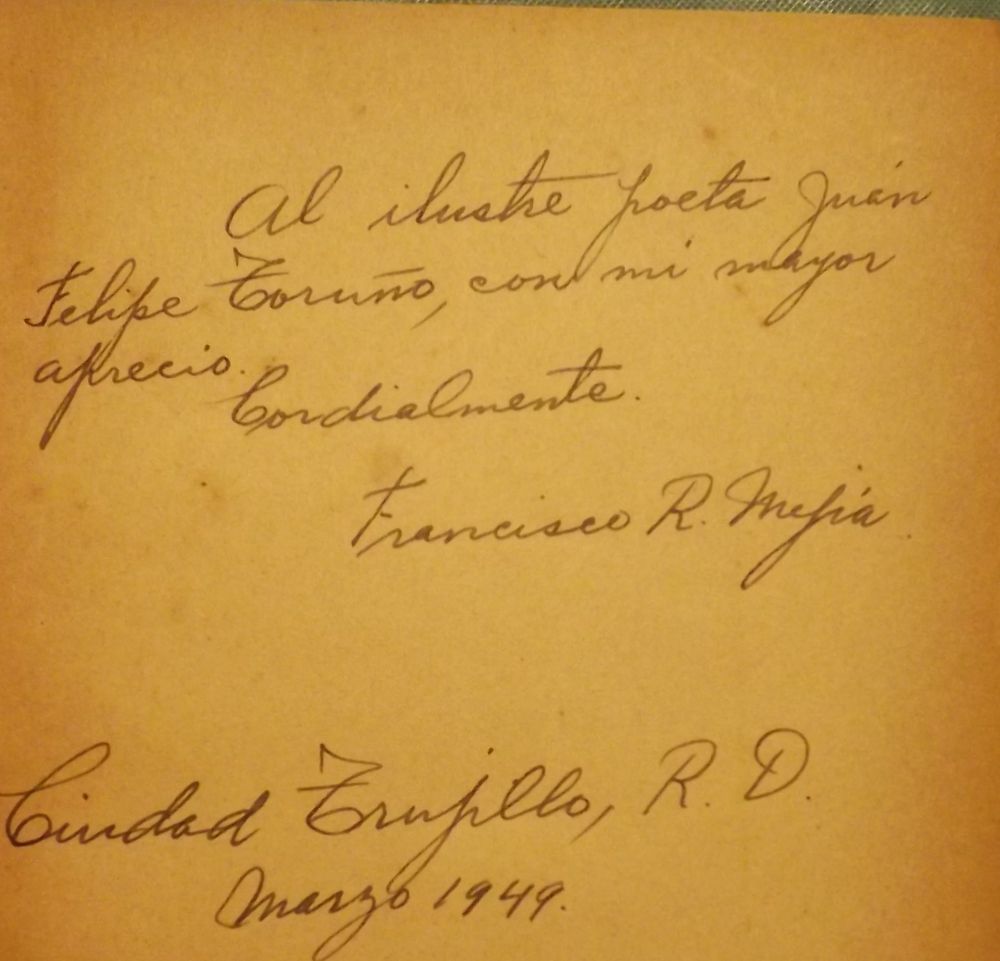 Al ilustre poeta Juán
Felipe Toruño, con mi mayor
aprecio.
Cordialmente.
Francisco R. Mejía
Ciudad Trujillo, R. D.
Marzo 1949.